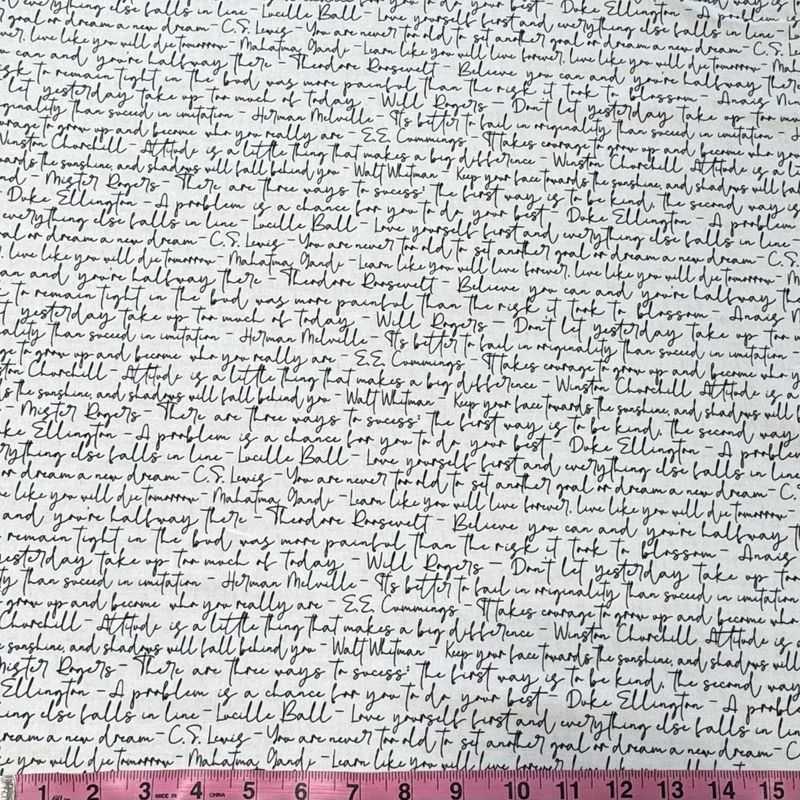 do your best - Duke Ellington - A problem is
everything else falls in line - Lucille Ball - Love yourself first and everything else falls in line -
goal or dream a new dream - C.S. Lewis - You are never too old to set another goal or dream a new dream - C.S. Le
live like you will die tomorrow - Mahatma Gandi - Learn like you will live forever, live like you will die tomorrow - Mah
can and you're halfway there - Theodore Roosevelt - Believe you can and you're halfway there
to remain tight in the bud was more painful than the risk it took to blossom - Anais Nin
let yesterday take up too much of today - Will Rogers - Don't let yesterday take up too mu
originality than suceed in imitation - Herman Melville - It's better to fail in originality than suceed in imitation -
courage to grow up and become who you really are - E.E. Cummings - It takes courage to grow up and become who you
Winston Churchill - Attitude is a little thing that makes a big difference - Winston Churchill, Attitude is a li
wards the sunshine, and shadows will fall behind you - Walt Whitman - Keep your face towards the sunshine, and shadows will fal
nd - Mister Rogers - There are three ways to sucess: the first way is to be kind, the second way is
- Duke Ellington - A problem is a chance for you to do your best - Duke Ellington - A problem
everything else falls in line - Lucille Ball - Love yourself first and everything else falls in line -
al or dream a new dream - C.S. Lewis - You are never too old to set another goal or dream a new dream - C.S.
, live like you will die tomorrow - Mahatma Gandi - Learn like you will live forever, live like you will die tomorrow - M
an and you're halfway there - Theodore Roosevelt - Believe you can and you're halfway th
to remain tight in the bud was more painful than the risk it took to blossom - Anais N
t yesterday take up too much of today - Will Rogers - Don't let yesterday take up too
ality than suceed in imitation - Herman Melville - It's better to fail in originality than suceed in imitation -
ge to grow up and become who you really are - E.E. Cummings - It takes courage to grow up and become who y
ston Churchill - Attitude is a little thing that makes a big difference - Winston Churchill, Attitude is a
s the sunshine, and shadows will fall behind you - Walt Whitman - Keep your face towards the sunshine, and shadows will f
- Mister Rogers - There are three ways to sucess: the first way is to be kind, the second way
ke Ellington - A problem is a chance for you to do your best - Duke Ellington - A problem
rything else falls in line - Lucille Ball - Love yourself first and everything else falls in line
or dream a new dream - C.S. Lewis - You are never too old to set another goal or dream a new dream - C.
ve like you will die tomorrow - Mahatma Gandi - Learn like you will live forever, live like you will die tomorrow -
and you're halfway there - Theodore Roosevelt - Believe you can and you're halfway t
remain tight in the bud was more painful than the risk it took to blossom - Anais
yesterday take up too much of today - Will Rogers - Don't let yesterday take up too
ty than suceed in imitation - Herman Melville - It's better to fail in originality than suceed in imitation
grow up and become who you really are - E.E. Cummings - It takes courage to grow up and become who
Churchill - Attitude is a little thing that makes a big difference - Winston Churchill, Attitude is a
e sunshine, and shadows will fall behind you - Walt Whitman - Keep your face towards the sunshine, and shadows will
Mister Rogers - There are three ways to sucess: the first way is to be kind, the second way
Ellington - A problem is a chance for you to do your best - Duke Ellington - A probl
hing else falls in line - Lucille Ball - Love yourself first and everything else falls in lin
ream a new dream - C.S. Lewis - You are never too old to set another goal or dream a new dream - C
e you will die tomorrow - Mahatma Gandi - Learn like you will live forever, live like you will die tomorrow
1 60 2 3 MADE IN 4 CHINA 5 6 7 8 9 10 11 12 13 14 15